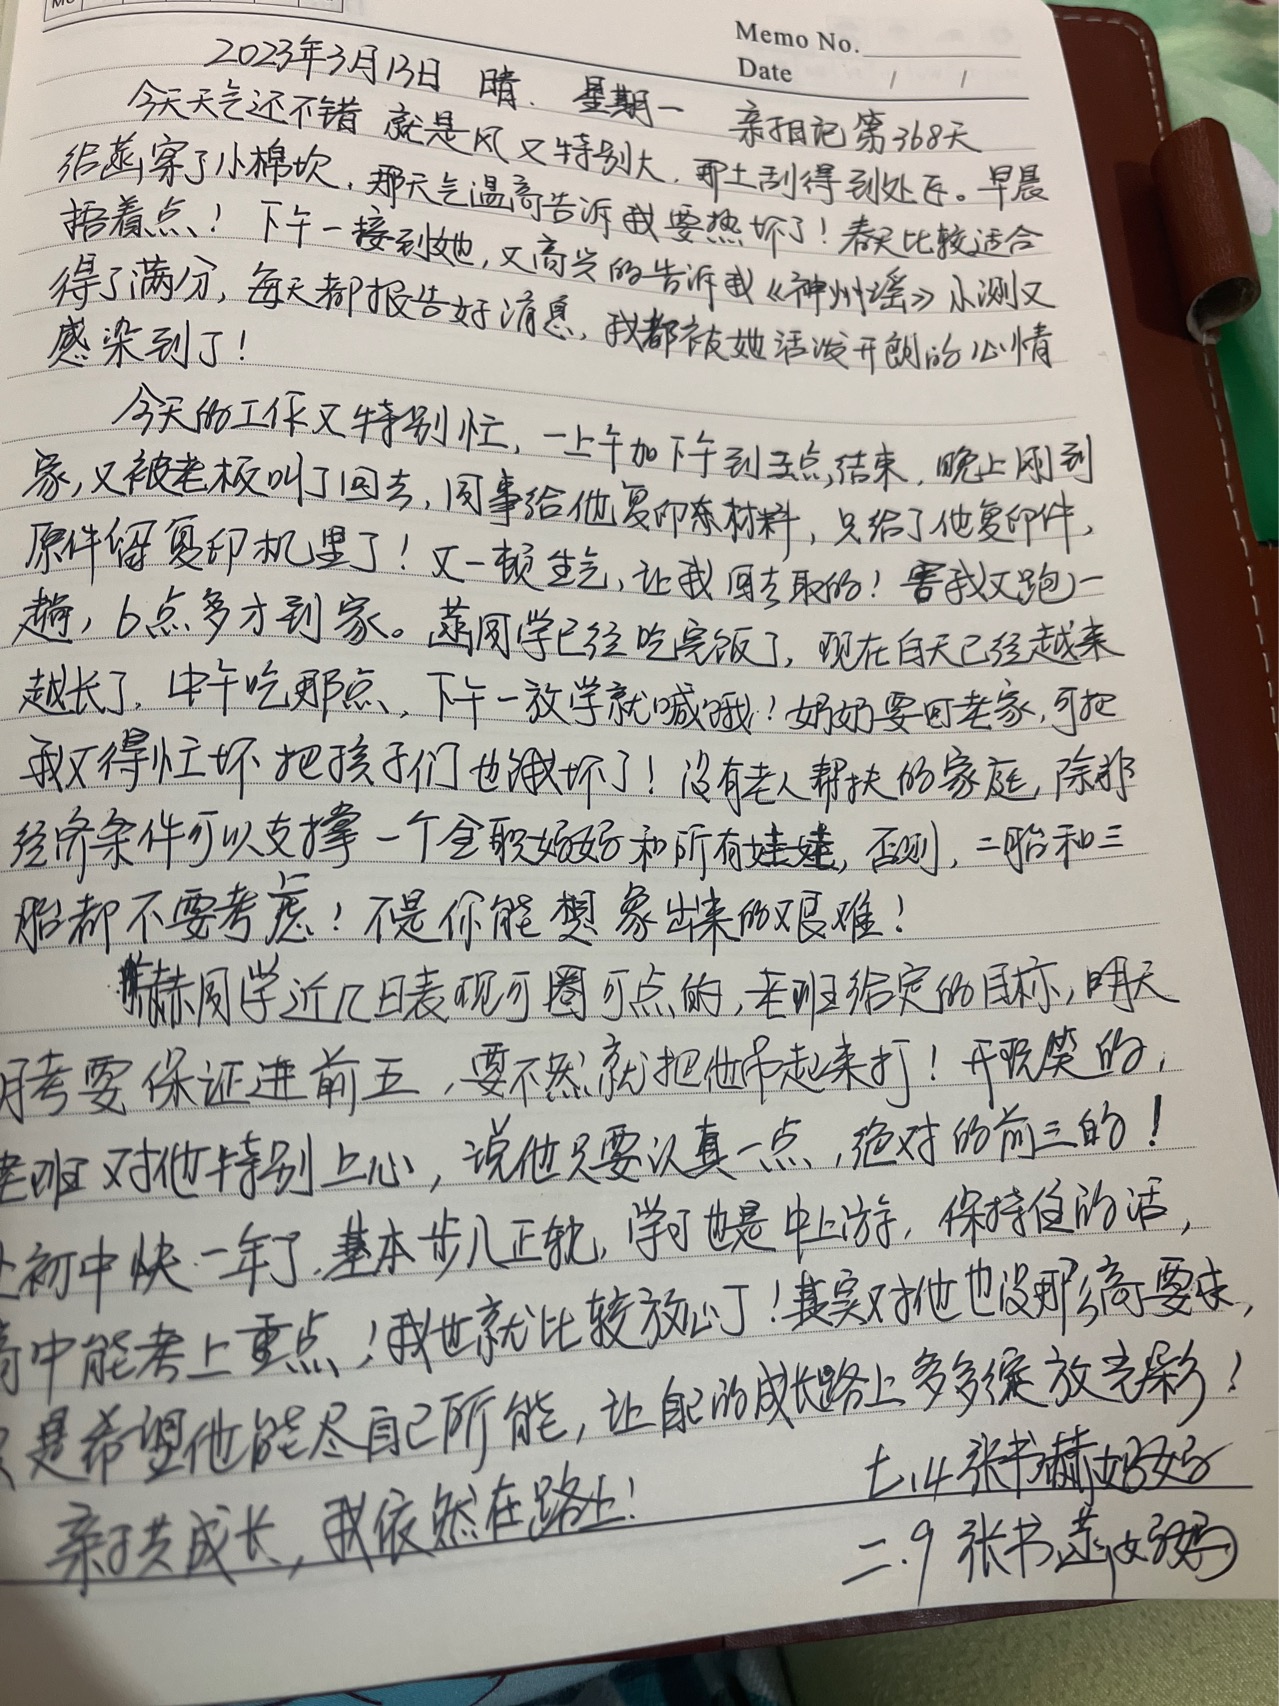 Memo No.
Date / /
2023年3月13日 晴. 星期一 亲子日记第368天
今天天气还不错 就是风又特别大, 那土刮得到处飞。早晨
给菡穿了小棉坎, 那天气温高告诉我要热坏了! 春天比较适合
捂着点! 下午一接到她, 又高兴的告诉我《神州谣》小测又
得了满分, 每天都报告好消息, 我都被她活泼开朗的心情
感染到了!
今天的工作又特别忙, 一上午加下午到五点结束, 晚上刚到
家, 又被老板叫了回去, 同事给他复印条材料, 只给了他复印件,
原件留复印机里了! 又一顿生气, 让我回去取的! 害我又跑一
趟, 6点多才到家。菡同学已经吃完饭了, 现在白天已经越来
越长了, 中午吃那点, 下午一放学就喊饿! 奶奶要回老家, 可把
我又得忙坏 把孩子们也饿坏了! 没有老人帮扶的家庭, 除非
经济条件可以支撑一个全职妈妈和所有娃娃, 否则, 二胎和三
胎都不要考虑! 不是你能想象出来的艰难!
赫同学近几日表现可圈可点的, 老班给定的目标, 明天
月考要保证进前五, 要不然就把他吊起来打! 开玩笑的,
老班对他特别上心, 说他只要认真一点, 绝对的前三的!
上初中快一年了, 基本步入正轨, 学习也是中上游, 保持住的话,
高中能考上重点! 我也就比较放心了! 其实对他也没那么高要求,
只是希望他能尽自己所能, 让自己的成长路上多多绽放光彩!
七.14 张书赫妈妈
亲子共成长, 我依然在路上!
二.9 张书菡妈妈